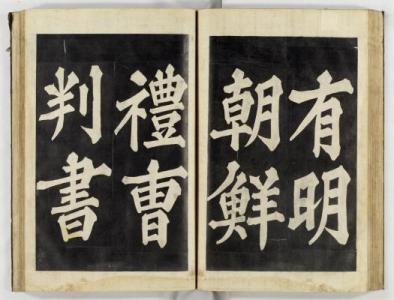 有明
朝鮮
禮曺
判書